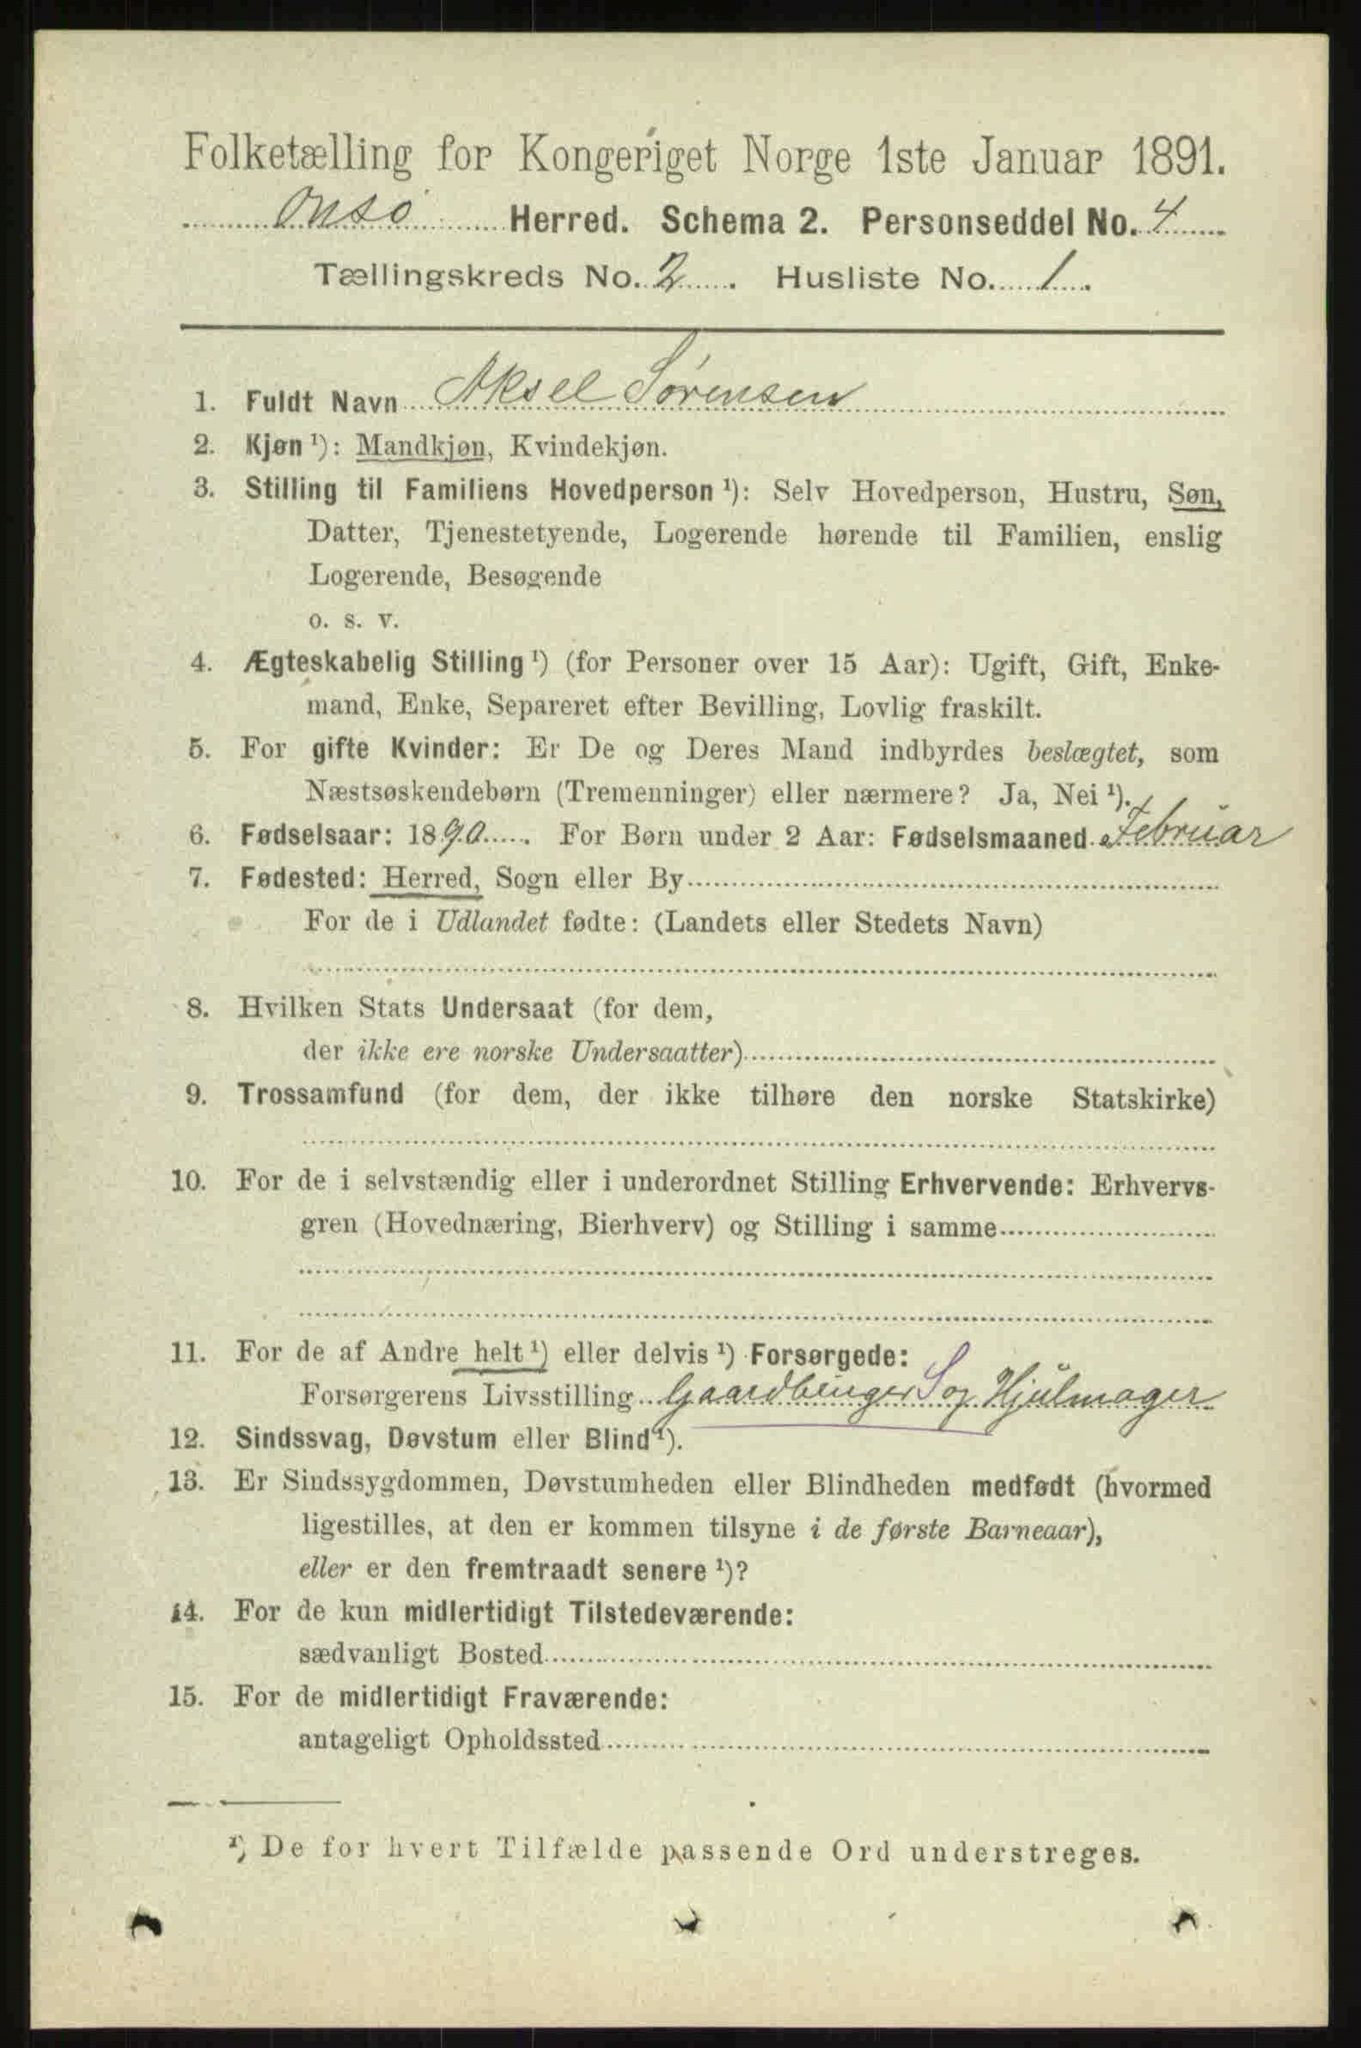 Folketælling for Kongeriget Norge 1ste Januar 1891.
Onsø Herred. Schema 2. Personseddel No. 4
Tællingskreds No. 2. Husliste No. 1.
1. Fuldt Navn Aksel Sørensen
2. Kjøn ¹): Mandkjøn, Kvindekjøn.
3. Stilling til Familiens Hovedperson ¹): Selv Hovedperson, Hustru, Søn,
Datter, Tjenestetyende, Logerende hørende til Familien, enslig
Logerende, Besøgende
o. s. v.
4. Ægteskabelig Stilling ¹) (for Personer over 15 Aar): Ugift, Gift, Enke-
mand, Enke, Separeret efter Bevilling, Lovlig fraskilt.
5. For gifte Kvinder: Er De og Deres Mand indbyrdes beslægtet, som
Næstsøskendebørn (Tremenninger) eller nærmere? Ja, Nei ¹).
6. Fødselsaar: 1890. For Børn under 2 Aar: Fødselsmaaned Februar
7. Fødested: Herred, Sogn eller By
For de i Udlandet fødte: (Landets eller Stedets Navn)
8. Hvilken Stats Undersaat (for dem,
der ikke ere norske Undersaatter)
9. Trossamfund (for dem, der ikke tilhøre den norske Statskirke)
10. For de i selvstændig eller i underordnet Stilling Erhvervende: Erhvervs-
gren (Hovednæring, Bierhverv) og Stilling i samme
11. For de af Andre helt ¹) eller delvis ¹) Forsørgede:
Forsørgerens Livsstilling Gaardbruger S og Hjulmager
12. Sindssvag, Døvstum eller Blind ¹).
13. Er Sindssygdommen, Døvstumheden eller Blindheden medfødt (hvormed
ligestilles, at den er kommen tilsyne i de første Barneaar),
eller er den fremtraadt senere ¹)?
14. For de kun midlertidigt Tilstedeværende:
sædvanligt Bosted
15. For de midlertidigt Fraværende:
antageligt Opholdssted
¹) De for hvert Tilfælde passende Ord understreges.